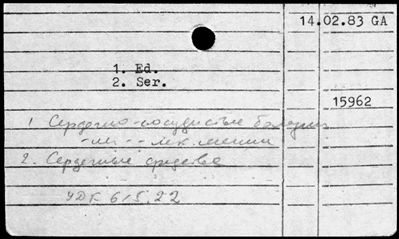 14.02.83 GA
1. Ed.
2. Ser.
15962
1 Сердечно-сосудистые болезни
лек.
2. Сердечные средства
УДК 615.22